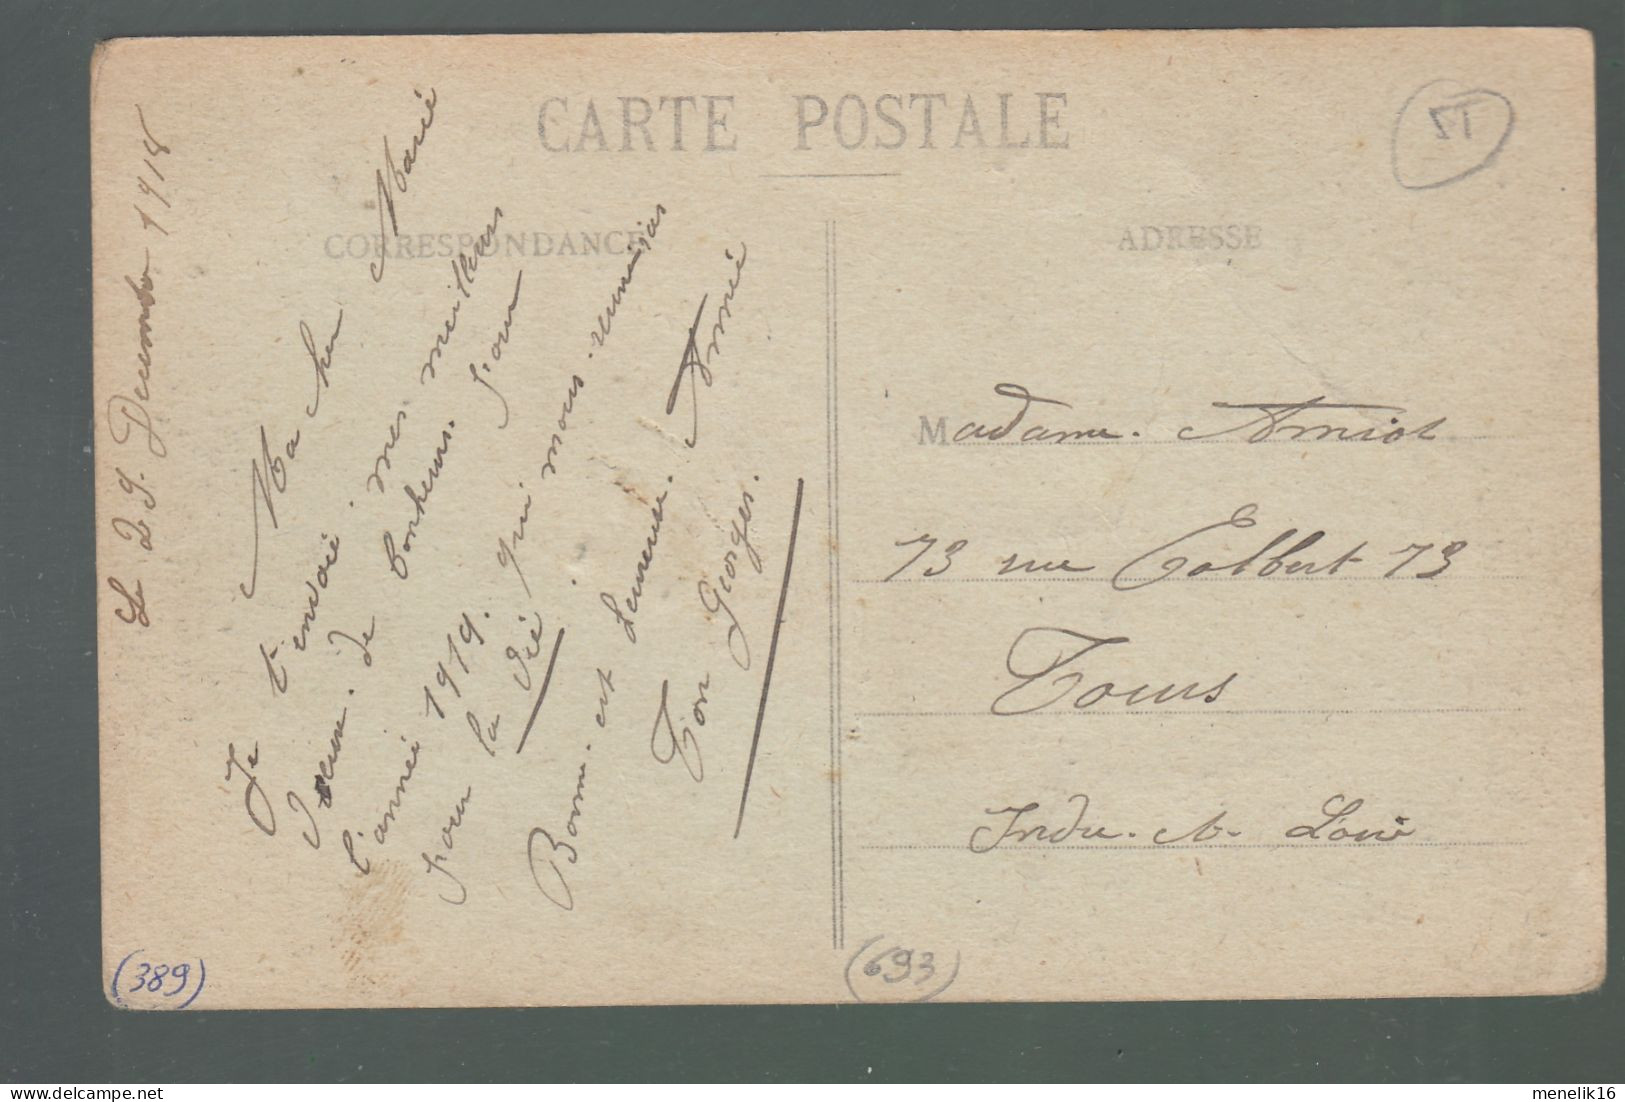 CARTE POSTALE
CORRESPONDANCE
ADRESSE
Le 29. Decembre 1918
Ma cher Marie
Je t'envoié. mes meilleurs
Voeux. de bonheurs. pour
l'année 1919. qui. nous. reunirias
pour la Vié.
Bonne. est heureuse. Année
Ton Georges.
Madame. Amiot
73 rue Colbert 73
Tours
Indre. et. Loire
(389)
(693)
menelik16